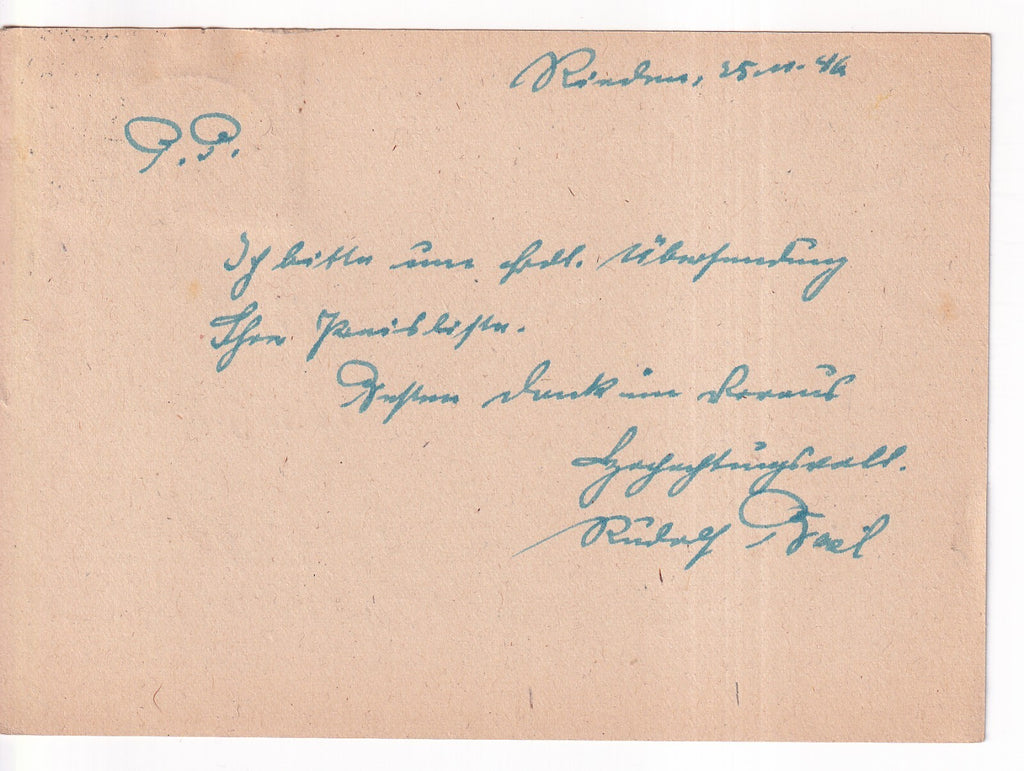 Rieden, 25.11.46
P.P.
Ich bitte um frdl. Übersendung
Ihrer Preisliste.
Besten Dank im Voraus
Hochachtungsvoll.
Rudolf